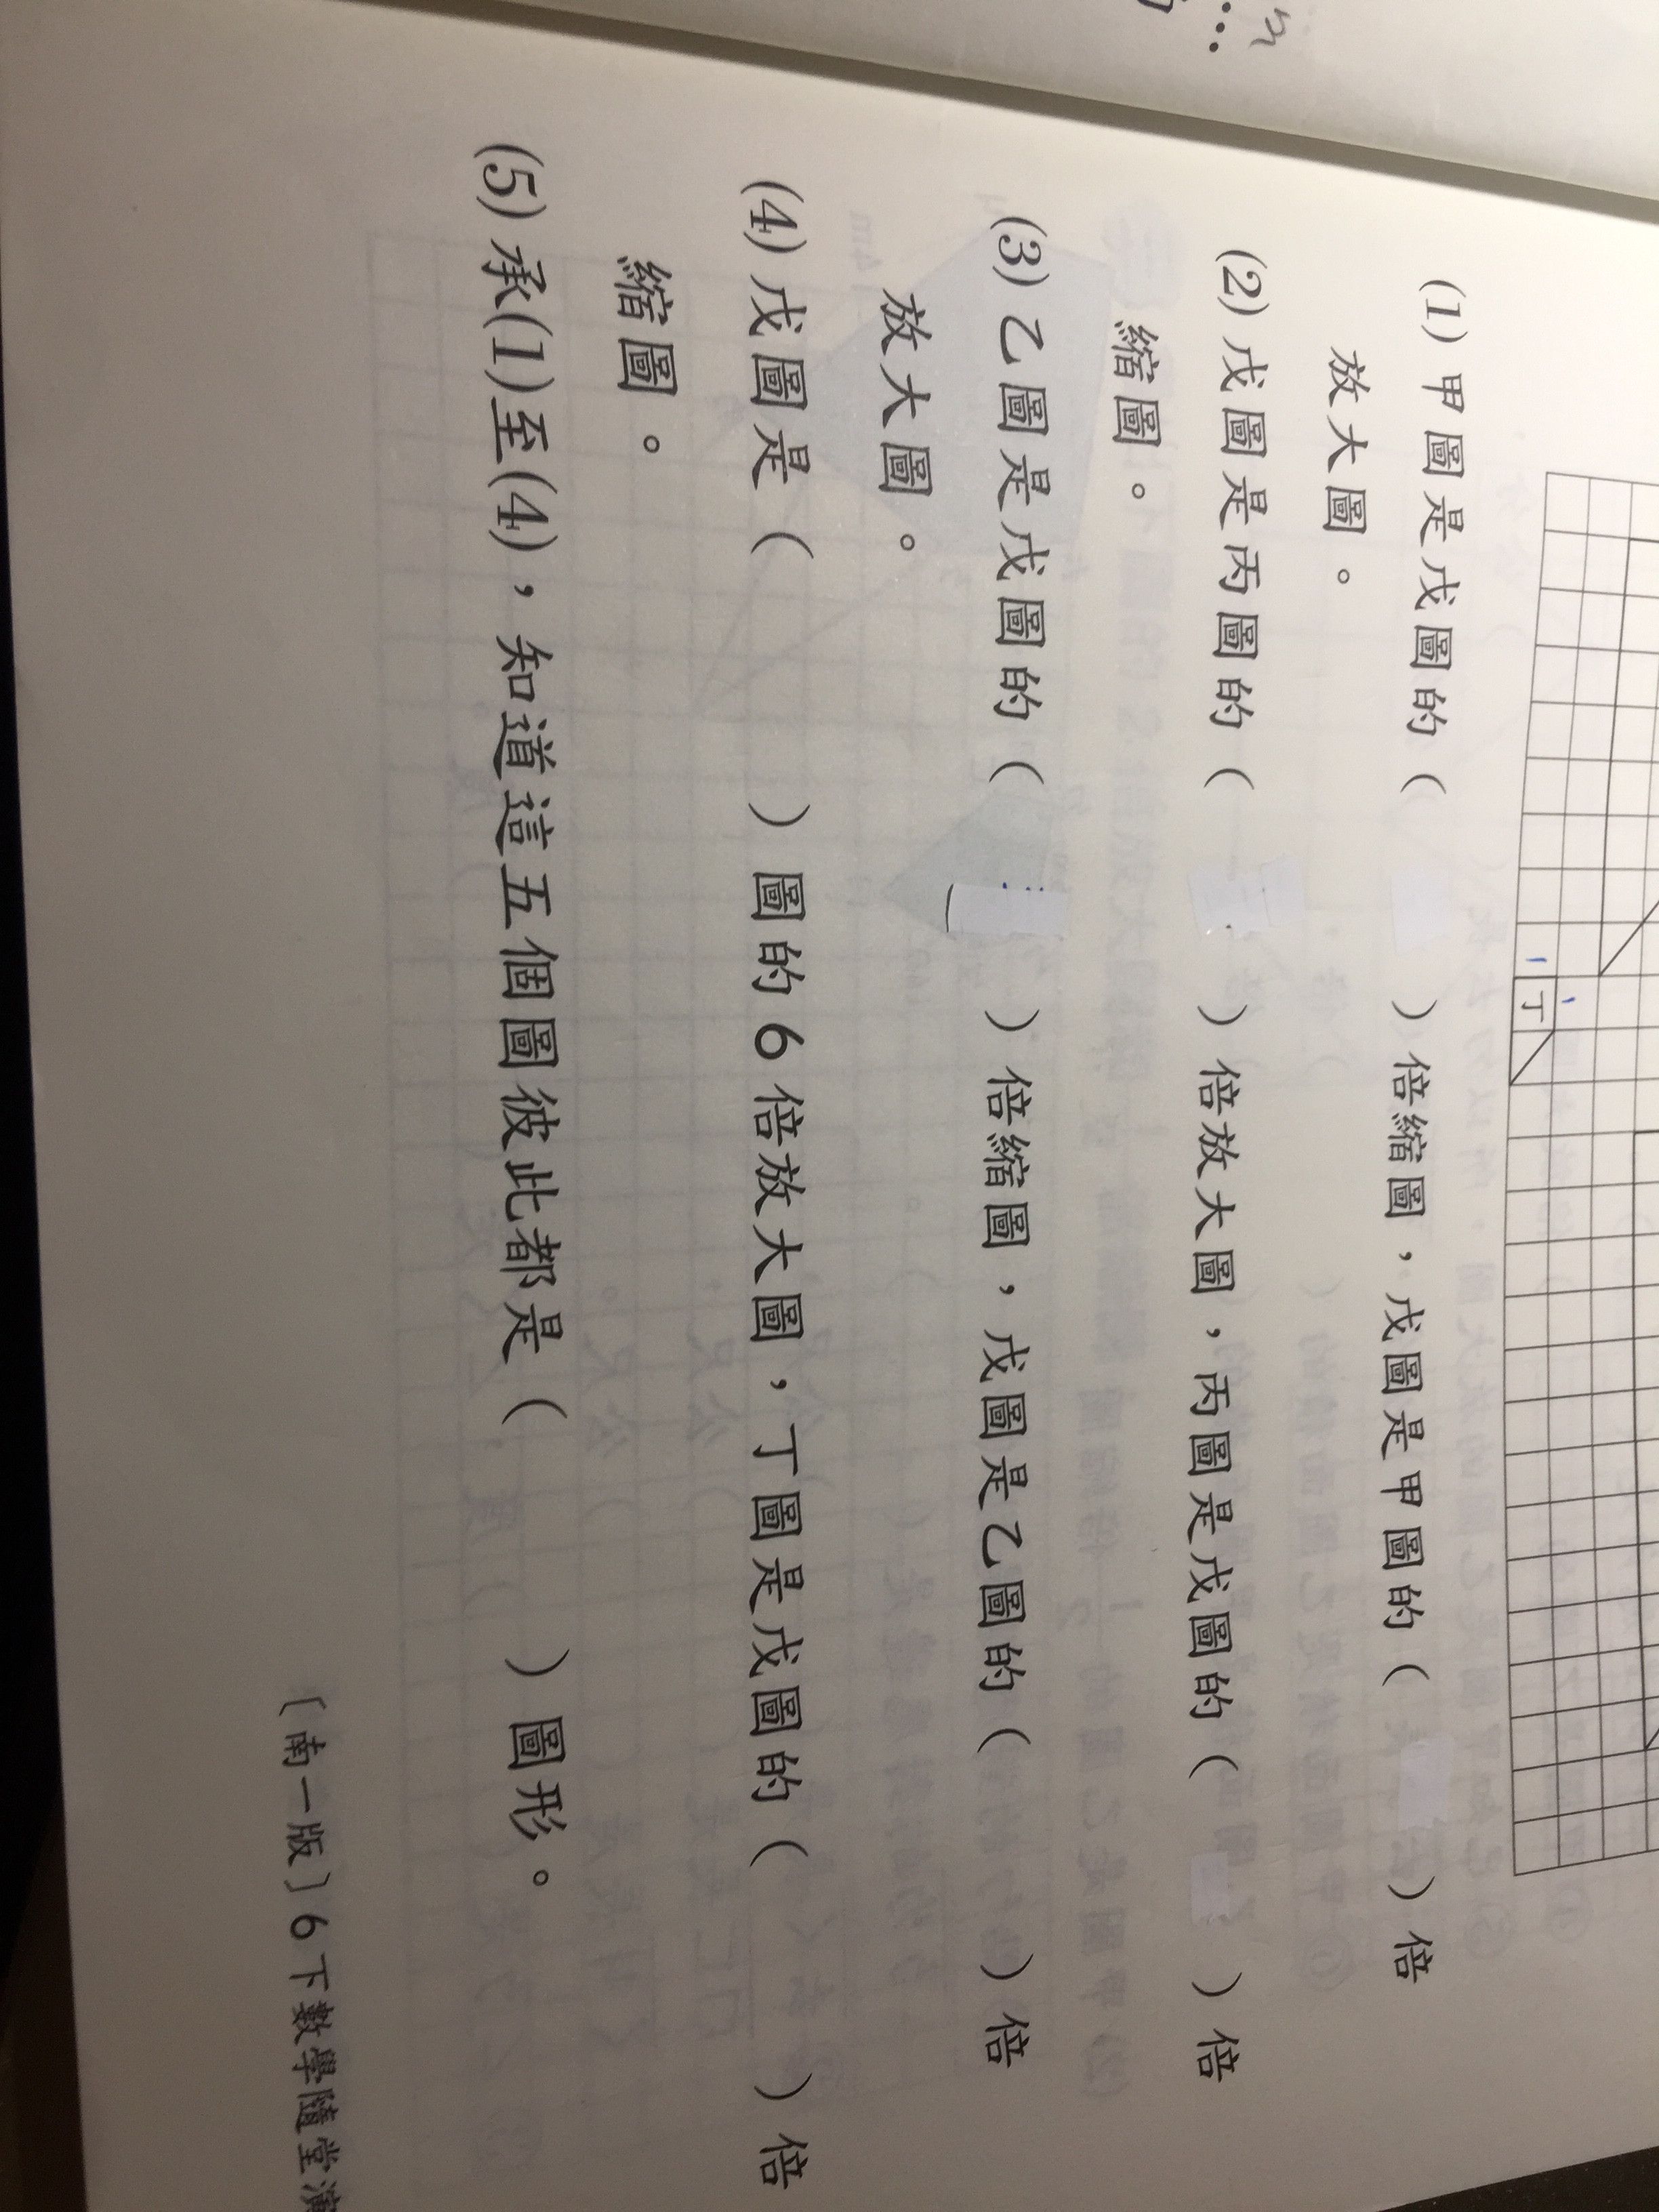 丁
(1) 甲圖是戊圖的（　　）倍縮圖，戊圖是甲圖的（　　）倍
放大圖。
(2) 戊圖是丙圖的（　　）倍放大圖，丙圖是戊圖的（　　）倍
縮圖。
(3) 乙圖是戊圖的（　　）倍縮圖，戊圖是乙圖的（　　）倍
放大圖。
(4) 戊圖是（　　）圖的6倍放大圖，丁圖是戊圖的（　　）倍
縮圖。
(5) 承(1)至(4)，知道這五個圖彼此都是（　　）圖形。
〔南一版〕6下數學隨堂演